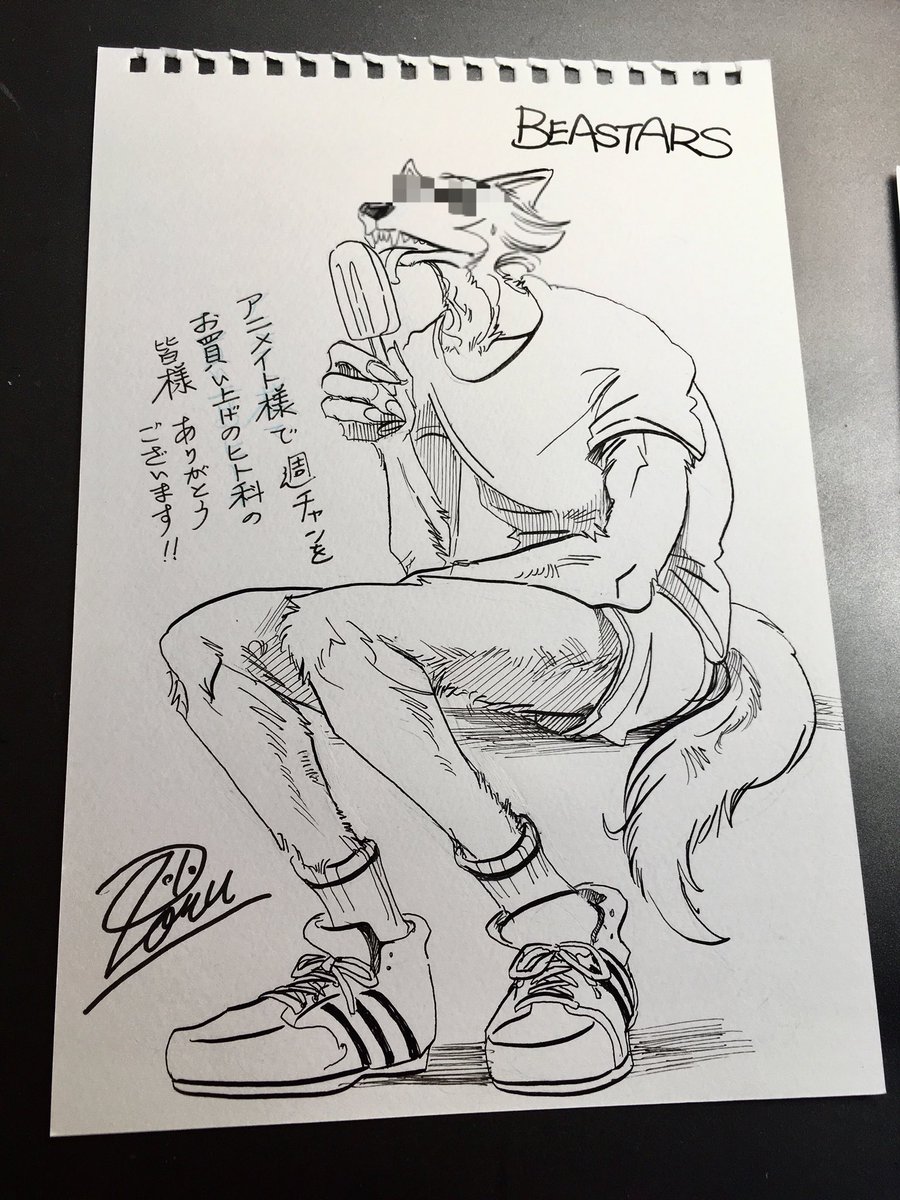 BEASTARS
アニメイト様で週チャンを
お買い上げのヒト科の
皆様 ありがとう
ございます!!